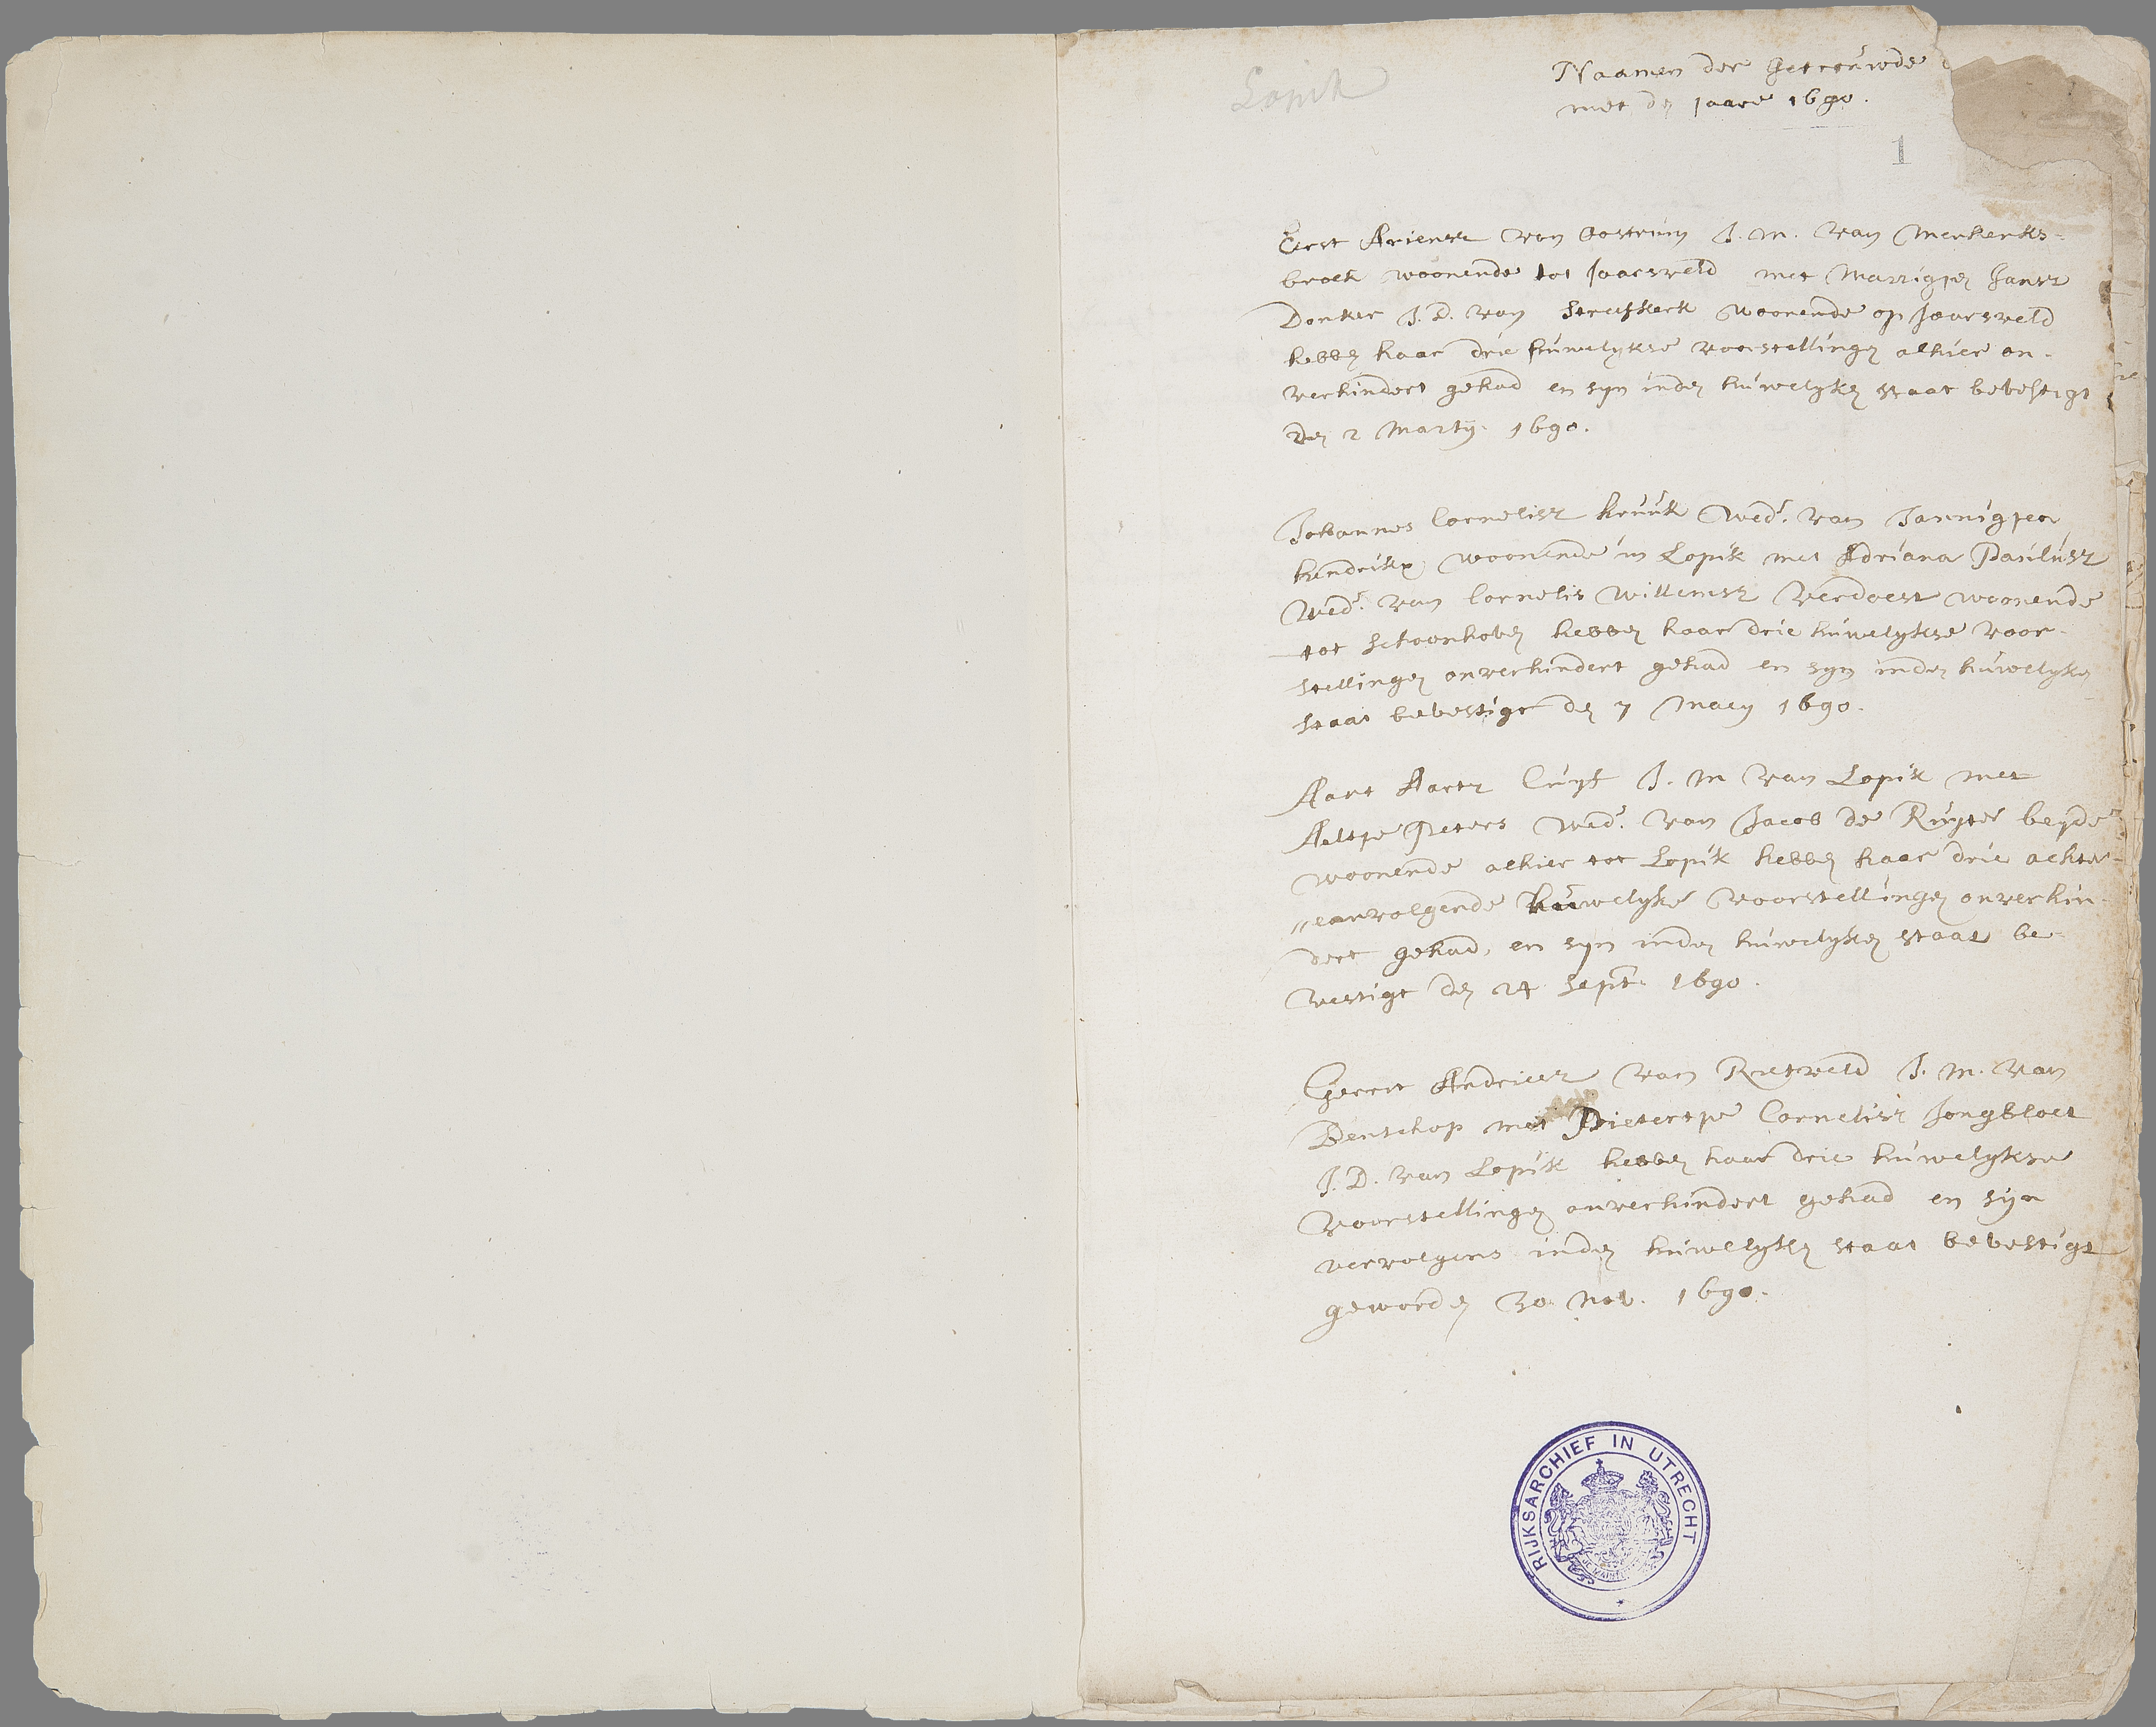 Lopik
Naamen der Getrouwde
met den jaare 1690.
1
Eerst Ariensz van Oostrum J. M. van Merkerks-
broek woonende tot Jaarsveld met Marrigjen Jansz
Donker J. D. van Streefkerk woonende op Jaarsveld
hebben haar drie huwelykse voorstellingen alhier on-
verhindert gehad en syn inden huwelyken staat bevestigt
den 2 Marty. 1690.
Johannes Cornelisz kruuk Wedr. van Jannigjen
hendrikx woonende in Lopik met Adriana Paulusz
Wedr. van Cornelis Willemsz Verdoest woonende
tot Schoonhoven hebben haar drie huwelykse voor-
stellingen onverhindert gehad en syn inden huwelyken
staat bevestigt den 7 Maey 1690.
Aart Aartz Cuyf J. M van Lopik met
Aeltje Peters Wedr. van Jacob de Ruyter beyde
woonende alhier tot Lopik hebben haar drie achter-
„eenvolgende huwelykse voorstellingen onverhin-
dert gehad, en syn inden huwelyken staat be-
vestigt den 24 Sept. 1690.
Gerrit Andriesz van Rietveld J. M. van
Benschop met Pietertje Cornelisz Jongbloet
J. D. van Lopik hebben haar drie huwelykse
voorstellingen onverhindert gehad en syn
vervolgens inden huwelyken staat bevestigt
geworden 30 Nov. 1690.
RIJKSARCHIEF IN UTRECHT